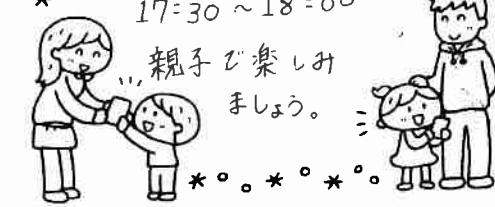 17:30~18:00
親子で楽しみ
ましょう。